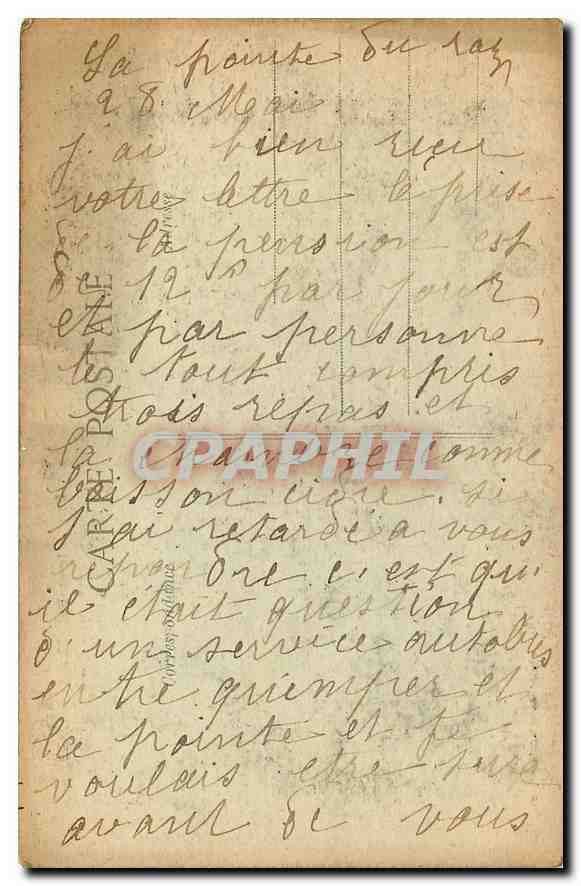 La pointe du raz
28 Mai
j'ai bien reçu
votre lettre le prise
de la pension est
de 12 f par jour
et par personne
le tout compris
trois repas et
la chambre comme
boisson cidre. si
j'ai retarde a vous
repondre c'est qu'
il était question
d'un service autobus
entre quimper et
la pointe et je
voulais etre sure
avant de vous
CARTE POSTALE
Correspondance
Adresse
CPAPHIL
.com